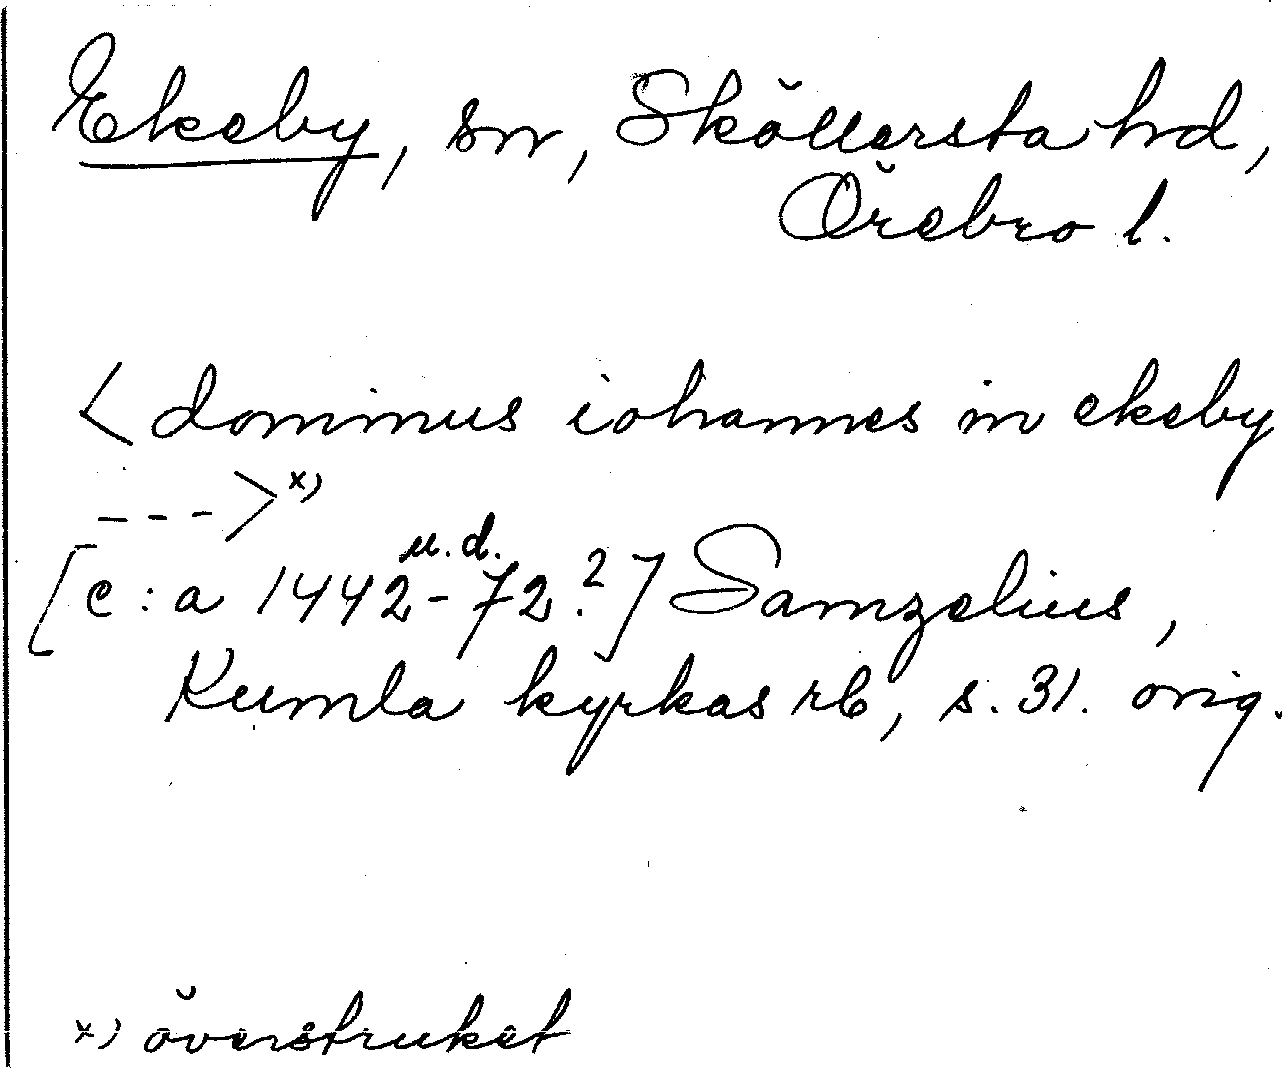 Ekeby, sn, Sköllersta hd,
Örebro l.
< dominus iohannes in ekeby
--- > x)
u.d.
[c:a 1442-72.?] Samzelius,
Kumla kyrkas rb, s. 31. orig.
x) överstruket